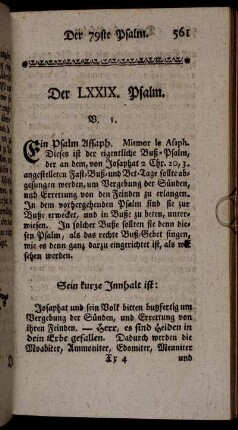 Der 79ste Psalm. 561
Der LXXIX. Psalm.
V. 1.
Ein Psalm Assaph. Mismor le Asaph.
Dieses ist der eigentliche Buß-Psalm,
der an dem, von Josaphat 2 Chr. 20, 3.
angestelleten Fast-Buß- und Bet-Tage sollte ab-
gesungen werden, um Vergebung der Sünden,
und Errettung von den Feinden zu erlangen.
In dem vorhergehenden Psalm sind sie zur
Buße erwecket, und in Buße zu beten, unter-
wiesen. In solcher Buße sollten sie denn die-
sen Psalm, als das rechte Buß-Gebet singen,
wie es denn ganz darzu eingerichtet ist, als wir
sehen werden.
Sein kurze Innhalt ist:
Josaphat und sein Volk bitten bußfertig um
Vergebung der Sünden, und Errettung von
ihren Feinden. — Herr, es sind Heiden in
dein Erbe gefallen. Dadurch werden die
Moabiter, Ammoniter, Edomiter, Meuniter
Xx 4 und